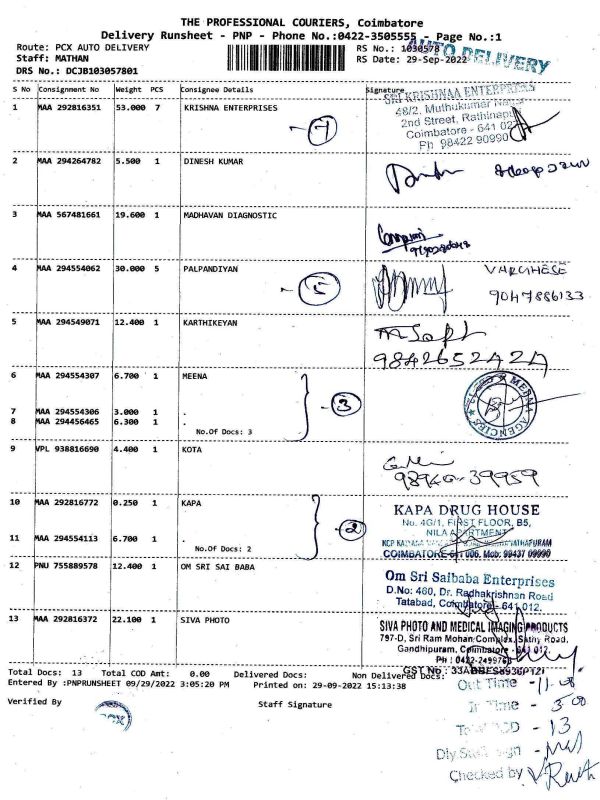 THE PROFESSIONAL COURIERS, Coimbatore
Delivery Runsheet - PNP - Phone No.:0422-3505555 - Page No.:1
Route: PCX AUTO DELIVERY
RS No.: 1030578
AUTO DELIVERY
Staff: MATHAN
RS Date: 29-Sep-2022
DRS No.: DCJB103057801
S No Consignment No Weight PCS Consignee Details Signature
1 MAA 292816351 53.000 7 KRISHNA ENTERPRISES
SRI KRISHNAA ENTERPRISES
48/2, Muthukumar Nagar
2nd Street, Rathinapuri
Coimbatore - 641 027
Ph 98422 90990
- 7
2 MAA 294264782 5.500 1 DINESH KUMAR
3 MAA 567481661 19.600 1 MADHAVAN DIAGNOSTIC
4 MAA 294554062 30.000 5 PALPANDIYAN
- 5
VARGHESE
9047886133
5 MAA 294549071 12.400 1 KARTHIKEYAN
9842652424
6 MAA 294554307 6.700 1 MEENA
7 MAA 294554306 3.000 1 .
8 MAA 294456465 6.300 1 .
No.Of Docs: 3
- 3
MEENA AGENCIES
9 VPL 938816690 4.400 1 KOTA
98940-39959
10 MAA 292816772 0.250 1 KAPA
11 MAA 294554113 6.700 1 .
No.Of Docs: 2
- 2
KAPA DRUG HOUSE
No. 4G/1, FIRST FLOOR, B5,
NILA APARTMENT
COIMBATORE-641 006. Mob: 99437 09990
12 PNU 755889578 12.400 1 OM SRI SAI BABA
Om Sri Saibaba Enterprises
D.No: 460, Dr. Radhakrishnan Road
Tatabad, Coimbatore - 641 012.
13 MAA 292816372 22.100 1 SIVA PHOTO
SIVA PHOTO AND MEDICAL IMAGING PRODUCTS
797-D, Sri Ram Mohan Complex, Sathy Road,
Gandhipuram, Coimbatore - 641 012.
Ph : 0422-249976
GST No :
Total Docs: 13 Total COD Amt: 0.00 Delivered Docs: Non Delivered Docs:
Entered By :PNPRUNSHEET 09/29/2022 3:05:20 PM Printed on: 29-09-2022 15:13:38
Verified By
Staff Signature
PCX
Out Time - 11.08
In Time - 3.00
Total COD - 13
Dly.Staff Sign -
Checked by